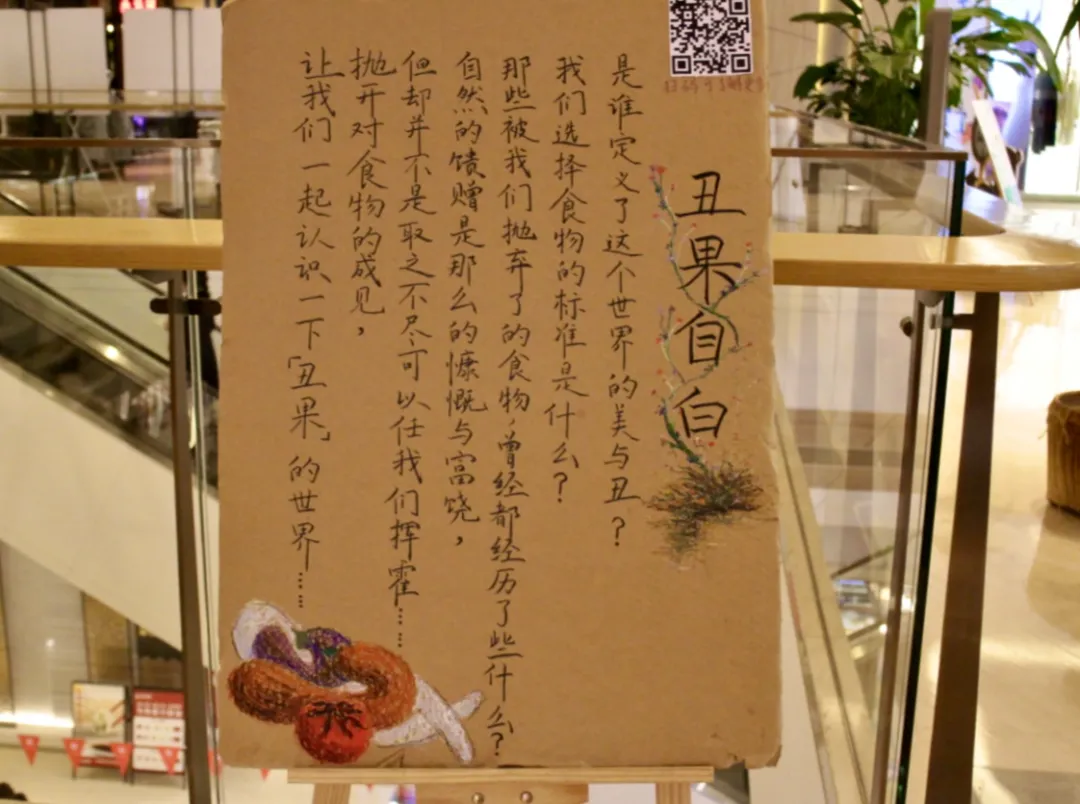 丑果自白
是谁定义了这个世界的美与丑？
我们选择食物的标准是什么？
那些被我们抛弃了的食物，曾经都经历了些什么？
自然的馈赠是那么的慷慨与富饶，
但却并不是取之不尽可以任我们挥霍……
抛开对食物的成见，
让我们一起认识一下「丑果」的世界……